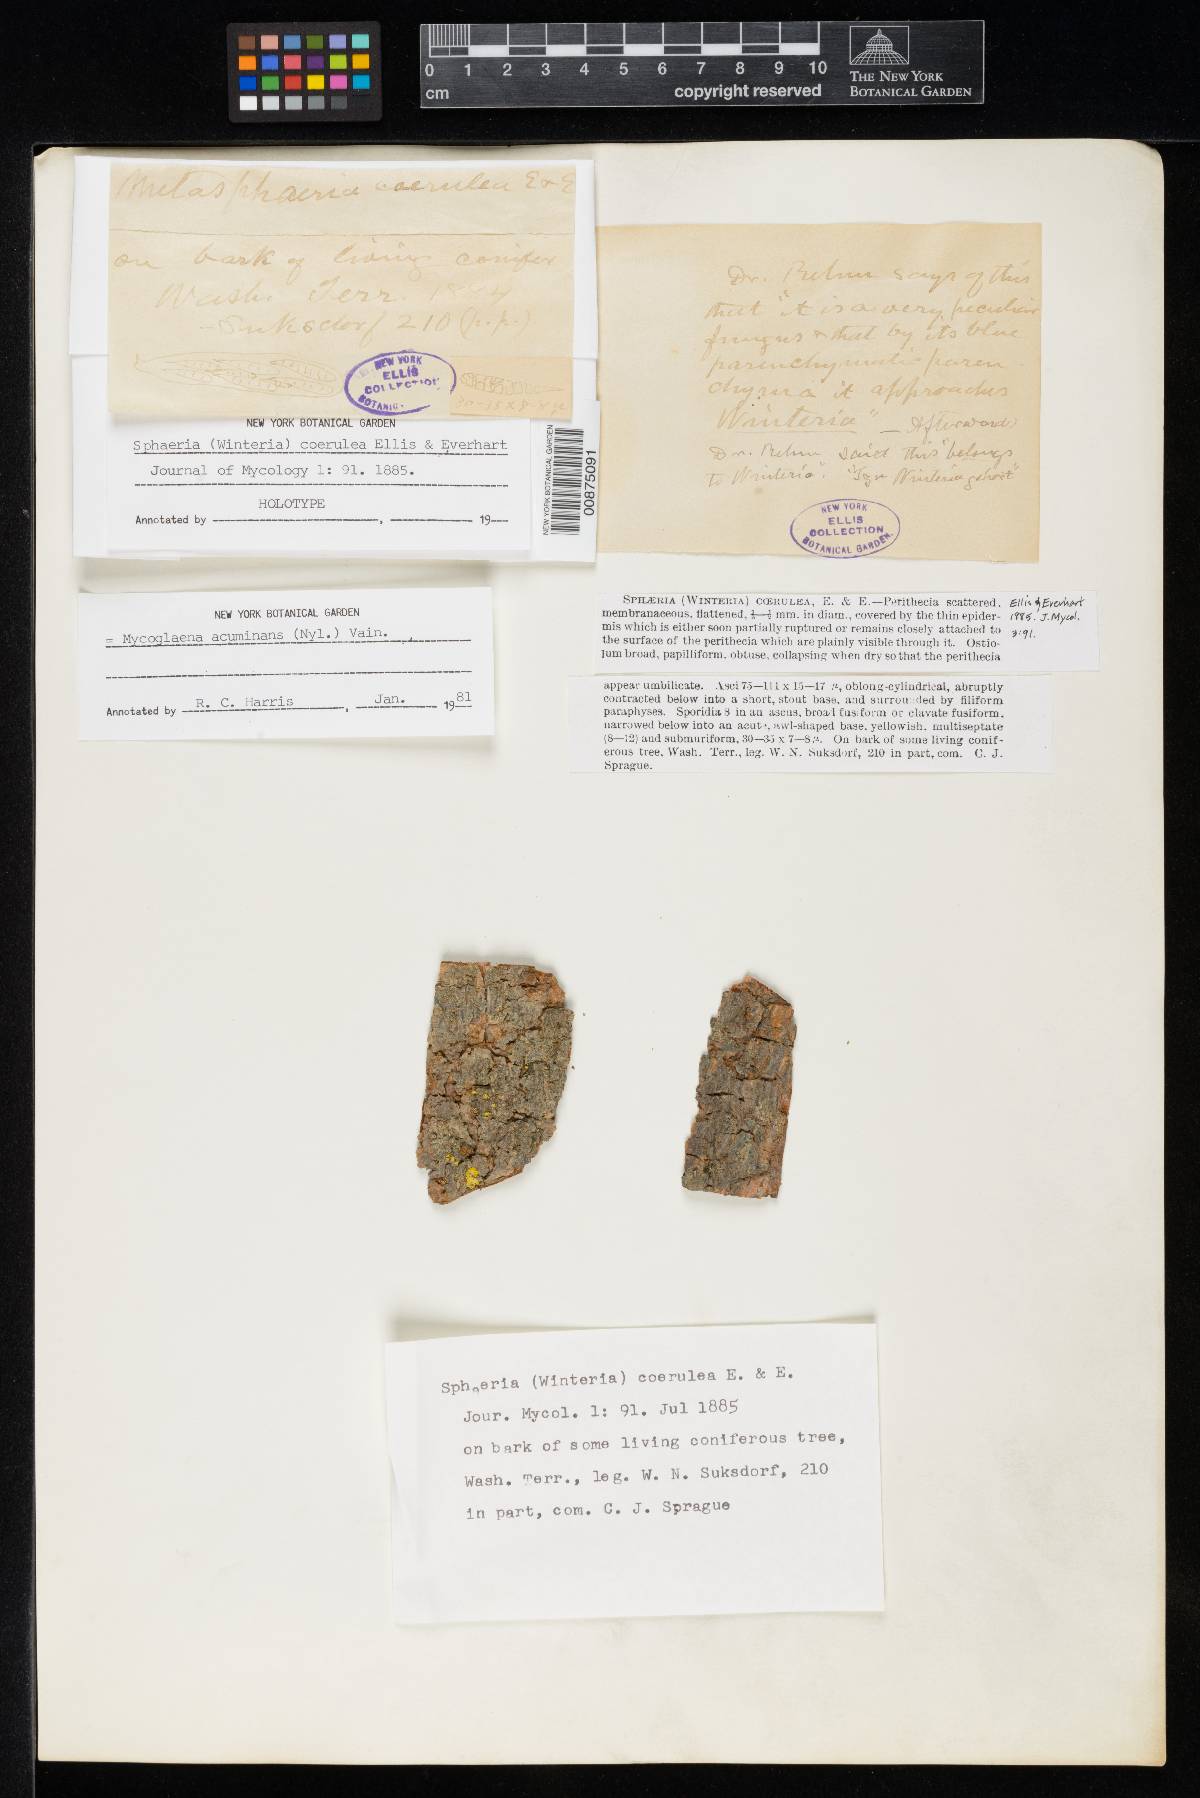 0 1 2 3 4 5 6 7 8 9 10
cm
copyright reserved
THE NEW YORK
BOTANICAL GARDEN
Metasphaeria coerulea E & E
on bark of living conifer
Wash. Terr. 1884
- Suksdorf 210 (p.p.)
NEW YORK
ELLIS
COLLECTION
BOTANIC
30-35 x 7-8
NEW YORK BOTANICAL GARDEN
Sphaeria (Winteria) coerulea Ellis & Everhart
Journal of Mycology 1: 91. 1885.
HOLOTYPE
Annotated by , 19
NEW YORK BOTANICAL GARDEN
00875091
Dr. Rehm says of this
that "it is a very peculiar
fungus & that by its blue
parenchymatic paren-
chyma it approaches
Winteria" - Afterwards
Dr. Rehm said this "belongs
to Winteria".
NEW YORK
ELLIS
COLLECTION
BOTANICAL GARDEN.
NEW YORK BOTANICAL GARDEN
= Mycoglaena acuminans (Nyl.) Vain.
Annotated by R. C. Harris, Jan. 1981
SPHÆRIA (WINTERIA) CŒRULEA, E. & E.—Perithecia scattered,
membranaceous, flattened, mm. in diam., covered by the thin epider-
mis which is either soon partially ruptured or remains closely attached to
the surface of the perithecia which are plainly visible through it. Ostio-
lum broad, papilliform, obtuse, collapsing when dry so that the perithecia
Ellis & Everhart
1885. J. Mycol.
:91.
appear umbilicate. Asci 75—111 x 15—17 µ, oblong-cylindrical, abruptly
contracted below into a short, stout base, and surrounded by filiform
paraphyses. Sporidia 8 in an ascus, broad fusiform or clavate fusiform,
narrowed below into an acute, awl-shaped base, yellowish, multiseptate
(8—12) and submuriform, 30—35 x 7—8 µ. On bark of some living conif-
erous tree, Wash. Terr., leg. W. N. Suksdorf, 210 in part, com. C. J.
Sprague.
Sphaeria (Winteria) coerulea E. & E.
Jour. Mycol. 1: 91. Jul 1885
on bark of some living coniferous tree,
Wash. Terr., leg. W. N. Suksdorf, 210
in part, com. C. J. Sprague